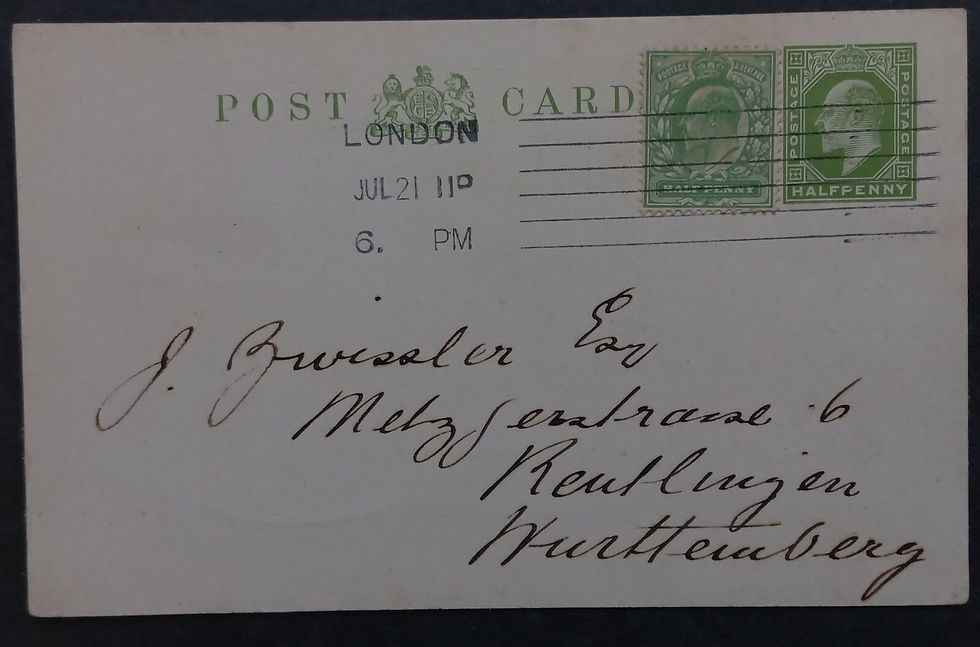 POST CARD
LONDON
JUL 21 11P
6. PM
POSTAGE & REVENUE
HALFPENNY
POSTAGE
POSTAGE
HALFPENNY
J. Zwissler Esq
Metzgerstrasse 6
Reutlingen
Wurttemberg